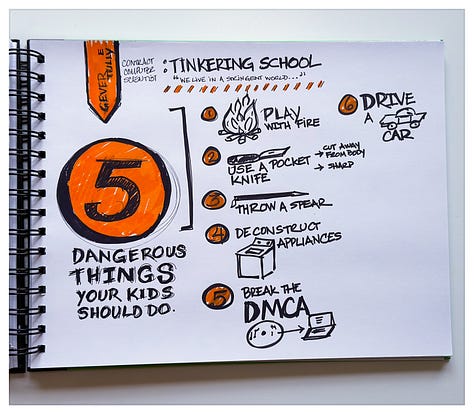 GEVER
TULLEY
CONTRACT
COMPUTER
SCIENTIST
: TINKERING SCHOOL
"WE LIVE IN A STRINGENT WORLD..."
5
DANGEROUS
THINGS
YOUR KIDS
SHOULD DO.
1 PLAY
WITH FIRE
2 USE A POCKET
KNIFE
→ CUT AWAY
FROM BODY
→ SHARP
3 THROW A SPEAR
4 DECONSTRUCT
APPLIANCES
5 BREAK THE
DMCA
6 DRIVE
A
CAR